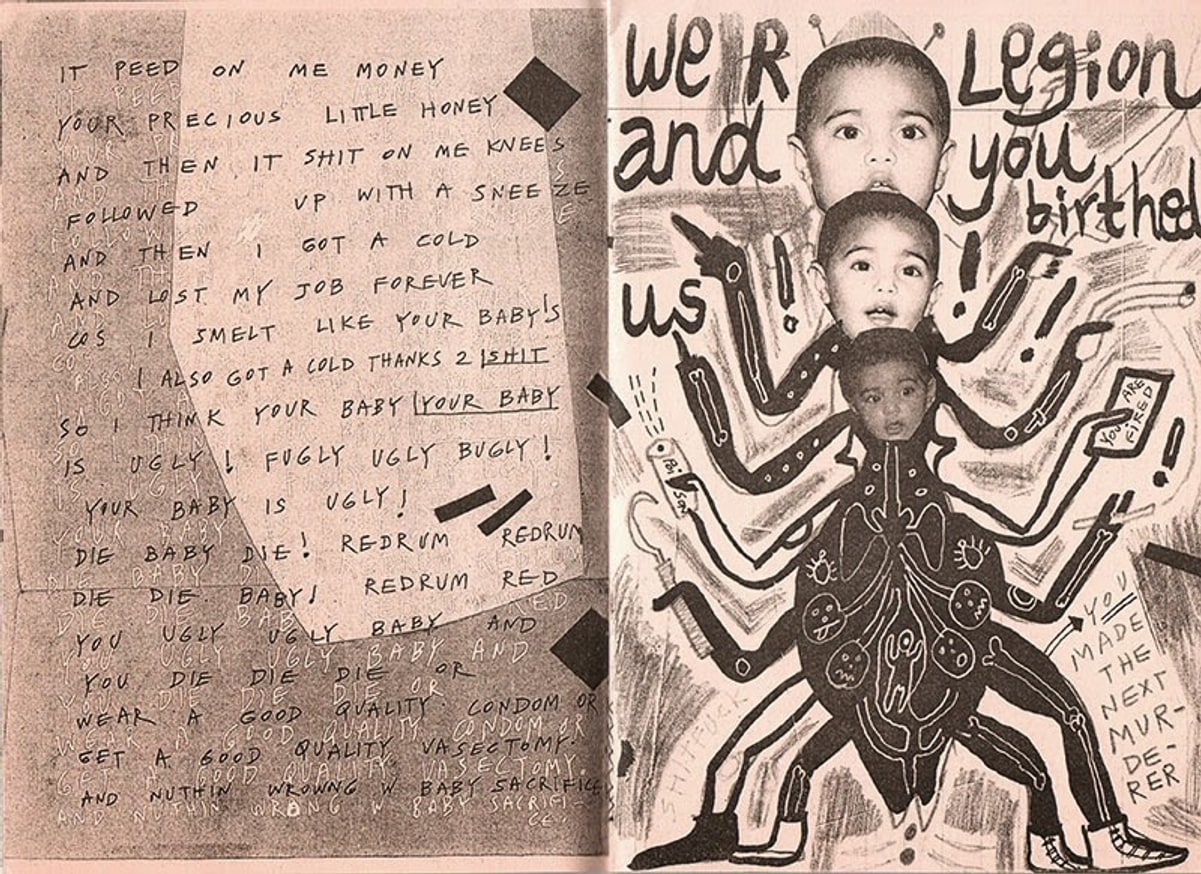 IT PEED ON ME MONEY
YOUR PRECIOUS LITTLE HONEY
AND THEN IT SHIT ON ME KNEES
FOLLOWED UP WITH A SNEEZE
AND THEN I GOT A COLD
AND LOST MY JOB FOREVER
COS I SMELT LIKE YOUR BABY'S
I ALSO GOT A COLD THANKS 2 SHIT
SO I THINK YOUR BABY YOUR BABY
IS UGLY! FUGLY UGLY BUGLY!
YOUR BABY IS UGLY!
DIE BABY DIE! REDRUM REDRUM
DIE DIE BABY! REDRUM RED
YOU UGLY UGLY BABY AND
YOU DIE DIE DIE OR
WEAR A GOOD QUALITY CONDOM OR
GET A GOOD QUALITY VASECTOMY.
AND NUTHIN WROWNG W BABY SACRIFICE
We R Legion
and you
birthed
us!!!
YOU ARE
FIRED
!
Poi
son
YOU
MADE
THE
NEXT
MUR-
DE-
RER
SHITFUCK